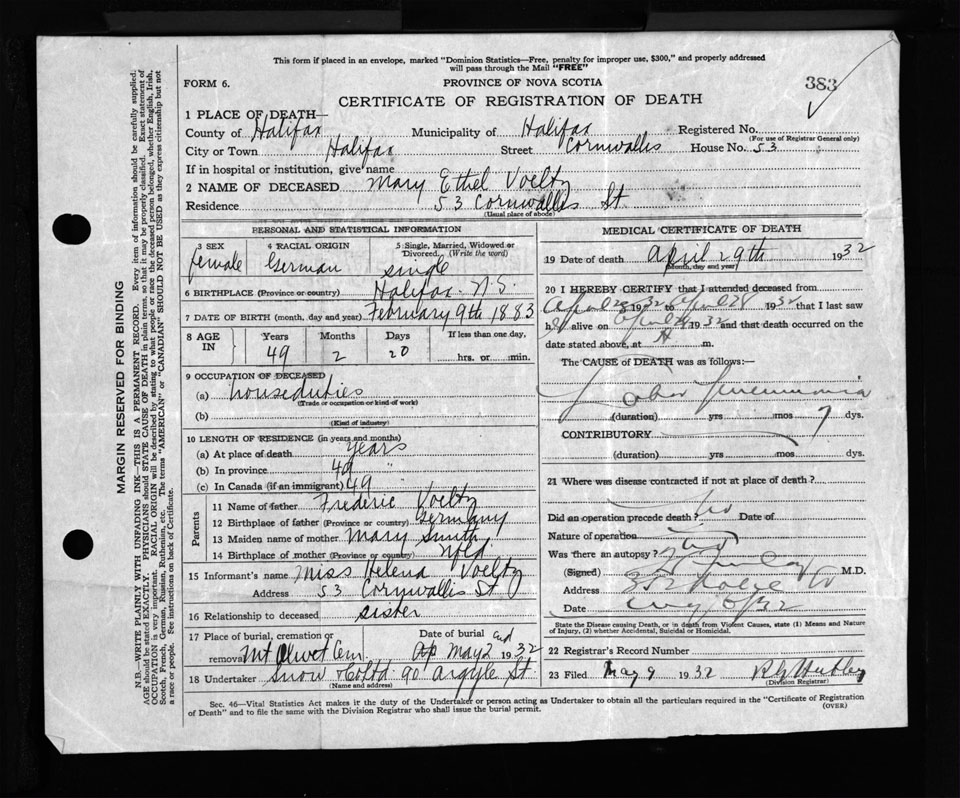 This form if placed in an envelope, marked "Dominion Statistics—Free, penalty for improper use, $300," and properly addressed
will pass through the Mail "FREE"
FORM 6.
PROVINCE OF NOVA SCOTIA
383
CERTIFICATE OF REGISTRATION OF DEATH
1 PLACE OF DEATH—
County of Halifax Municipality of Halifax Registered No.
(For use of Registrar General only)
City or Town Halifax Street Cornwallis House No. 53
If in hospital or institution, give name
2 NAME OF DECEASED Mary Ethel Voeltz
Residence 53 Cornwallis St
(Usual place of abode)
PERSONAL AND STATISTICAL INFORMATION
3 SEX 4 RACIAL ORIGIN 5 Single, Married, Widowed or
Divorced. (Write the word)
female German single
6 BIRTHPLACE (Province or country) Halifax N.S.
7 DATE OF BIRTH (month, day and year) February 9th 1883
8 AGE IN Years Months Days If less than one day,
49 2 20 hrs. or min.
9 OCCUPATION OF DECEASED
(a) houseduties
(Trade or occupation or kind of work)
(b)
(Kind of industry)
10 LENGTH OF RESIDENCE (in years and months)
(a) At place of death years
(b) In province 49 "
(c) In Canada (if an immigrant) 49 "
Parents
11 Name of father Frederic Voeltz
12 Birthplace of father (Province or country) Germany
13 Maiden name of mother Mary Smith
14 Birthplace of mother (Province or country) Nfld.
15 Informant's name Miss Helena Voeltz
Address 53 Cornwallis St
16 Relationship to deceased sister
17 Place of burial, cremation or Date of burial
removal Mt Olivet Cem May 2nd 1932
18 Undertaker Snow & Co Ltd 90 Argyle St
(Name and address)
MEDICAL CERTIFICATE OF DEATH
19 Date of death April 29th 1932
(Month, day and year)
20 I HEREBY CERTIFY that I attended deceased from
1932 to April 28 1932 that I last saw
h alive on 1932 and that death occurred on the
date stated above, at m.
The CAUSE of DEATH was as follows:—
Lobar Pneumonia
(duration) yrs mos 7 dys.
CONTRIBUTORY
(duration) yrs mos dys.
21 Where was disease contracted if not at place of death?
Did an operation precede death? No Date of
Nature of operation
Was there an autopsy?
(Signed) M.D.
Address
Date
State the Disease causing Death, or in death from Violent Causes, state (1) Means and Nature
of Injury, (2) whether Accidental, Suicidal or Homicidal.
22 Registrar's Record Number
23 Filed May 9 1932
(Division Registrar)
Sec. 46—Vital Statistics Act makes it the duty of the Undertaker or person acting as Undertaker to obtain all the particulars required in the "Certificate of Registration
of Death" and to file the same with the Division Registrar who shall issue the burial permit.
(OVER)
MARGIN RESERVED FOR BINDING
N.B.—WRITE PLAINLY WITH UNFADING INK—THIS IS A PERMANENT RECORD. Every item of information should be carefully supplied.
AGE should be stated EXACTLY. PHYSICIANS should STATE CAUSE OF DEATH in plain terms, so that it may be properly classified. Exact statement of
OCCUPATION is very important. RACIAL ORIGIN will be described by stating to what people or race the deceased person belonged, whether English, Irish,
Scotch, French, German, Russian, Ruthenian, etc. The terms "AMERICAN" or "CANADIAN" SHOULD NOT BE USED as they express citizenship but not
a race or people. See instructions on back of Certificate.